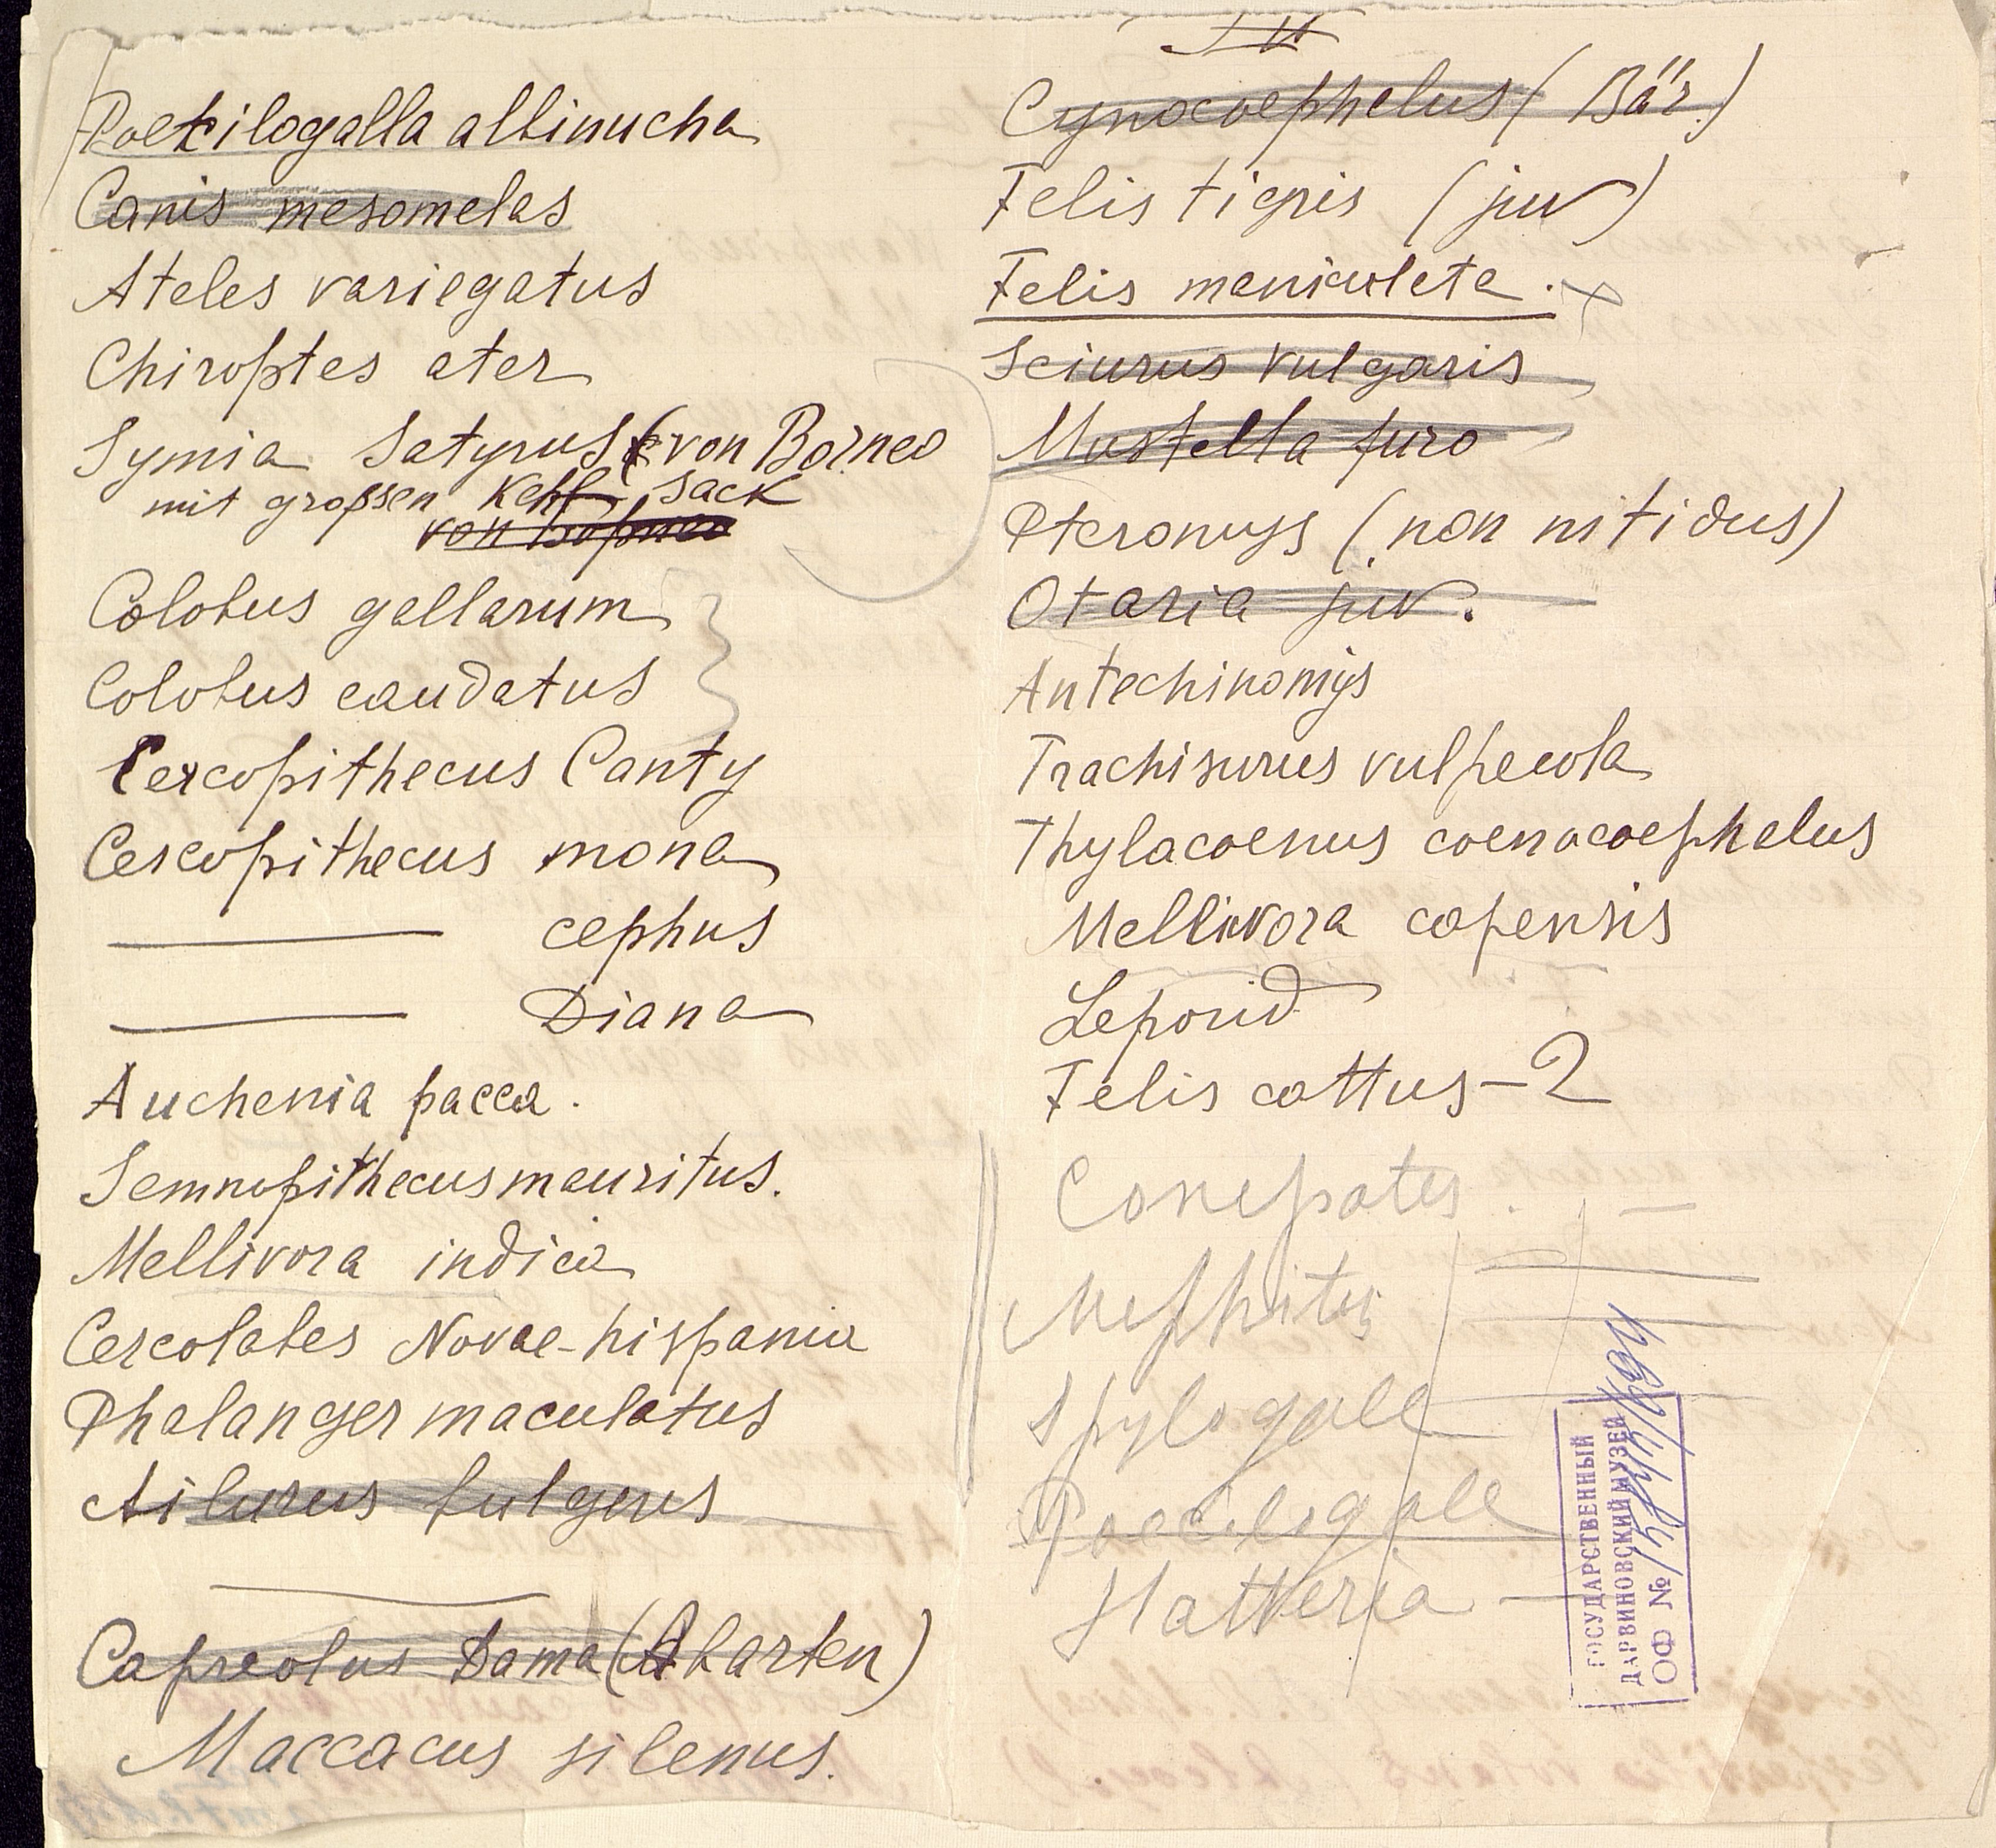 Poecilogalla albinucha
Canis mesomelas
Ateles variegatus
Chiroptes ater
Symia Satyrus (von Borneo
mit großen Kehl Sack
von Borneo
Colobus gallarum
Colobus caudatus
Cercopithecus Canty
Cercopithecus mona
——— cephus
——— Diana
Auchenia pacca.
Semnopithecus mauritus.
Mellivora indica
Cercolabes Novae-hispania
Phalanger maculatus
Ailurus fulgens
Capreolus Dama (Abarten)
Maccacus silenus.
Cynocoephelus (Bär.)
Felis tigris (juv)
Felis maniculata.
Sciurus vulgaris
Mustella furo
Pteromys (non nitidus)
Otaria juv.
Antechinomys
Trachisurus vulpecola
Thylacoenus coenocoephalus
Mellivora capensis
Leporid
Felis cattus – 2
Conepates. —
Mephitis
Spylogale
Poecilogale
Hatteria —
ГОСУДАРСТВЕННЫЙ
ДАРВИНОВСКИЙ МУЗЕЙ
ОФ №